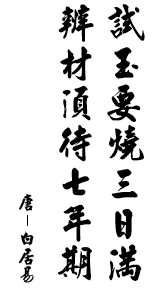 試玉要燒三日滿
辨材須待七年期
唐－白居易